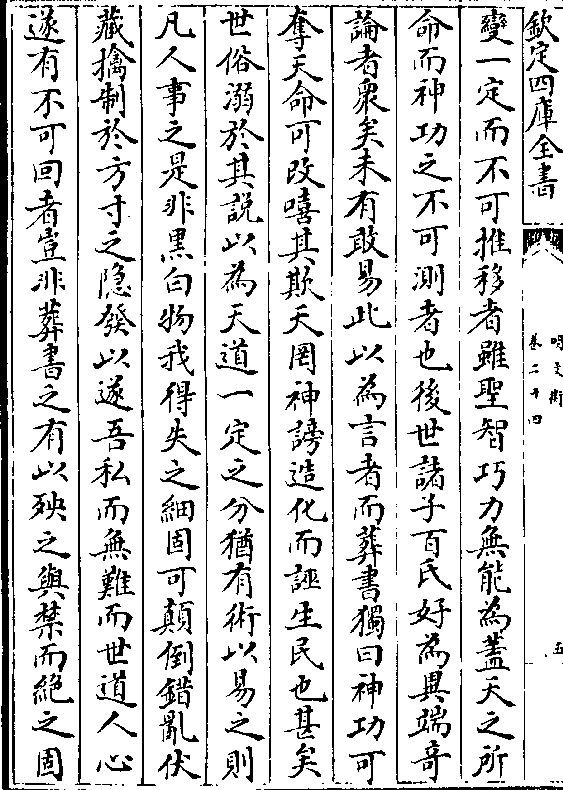 欽定四庫全書
明文衡
卷二十四
五
變一定而不可推移者雖聖智巧力無能為蓋天之所
命而神功之不可測者也後世諸子百氏好為異端奇
論者衆矣未有敢易此以為言者而葬書獨曰神功可
奪天命可改嘻其欺天罔神謗造化而誣生民也甚矣
世俗溺於其說以為天道一定之分猶有術以易之則
凡人事之是非黑白物我得失之細固可顛倒錯亂伏
藏擒制於方寸之隠發以遂吾私而無難而世道人心
遂有不可回者豈非葬書之有以殃之與禁而絕之固